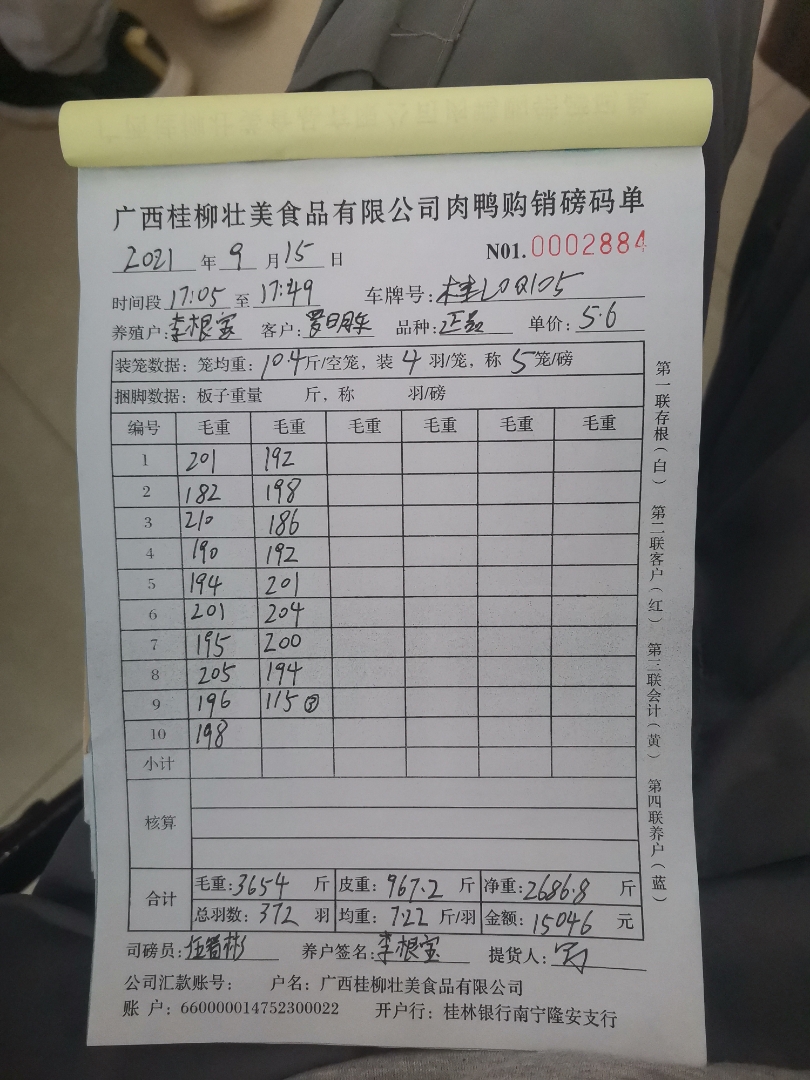 广西桂柳壮美食品有限公司肉鸭购销磅码单
2021 年 9 月 15 日 N01.0002884
时间段 17:05 至 17:49 车牌号: 桂L0Q105
养殖户: 李根宝 客户: 品种: 正品 单价: 5.6
装笼数据: 笼均重: 10.4 斤/空笼, 装 4 羽/笼, 称 5 笼/磅
捆脚数据: 板子重量 斤, 称 羽/磅
编号 毛重 毛重 毛重 毛重 毛重 毛重
1 201 192
2 182 198
3 210 186
4 190 192
5 194 201
6 201 204
7 195 200
8 205 194
9 196 115 ③
10 198
小计
核算
合计 毛重: 3654 斤 皮重: 967.2 斤 净重: 2686.8 斤
总羽数: 372 羽 均重: 7.22 斤/羽 金额: 15046 元
司磅员: 养户签名: 李根宝 提货人:
公司汇款账号: 户名: 广西桂柳壮美食品有限公司
账 户: 660000014752300022 开户行: 桂林银行南宁隆安支行
第一联存根(白) 第二联客户(红) 第三联会计(黄) 第四联养户(蓝)